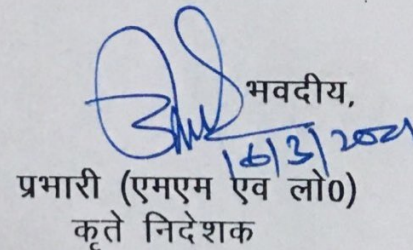 भवदीय,
16/3/2021
प्रभारी (एमएम एव लो0)
कृते निदेशक